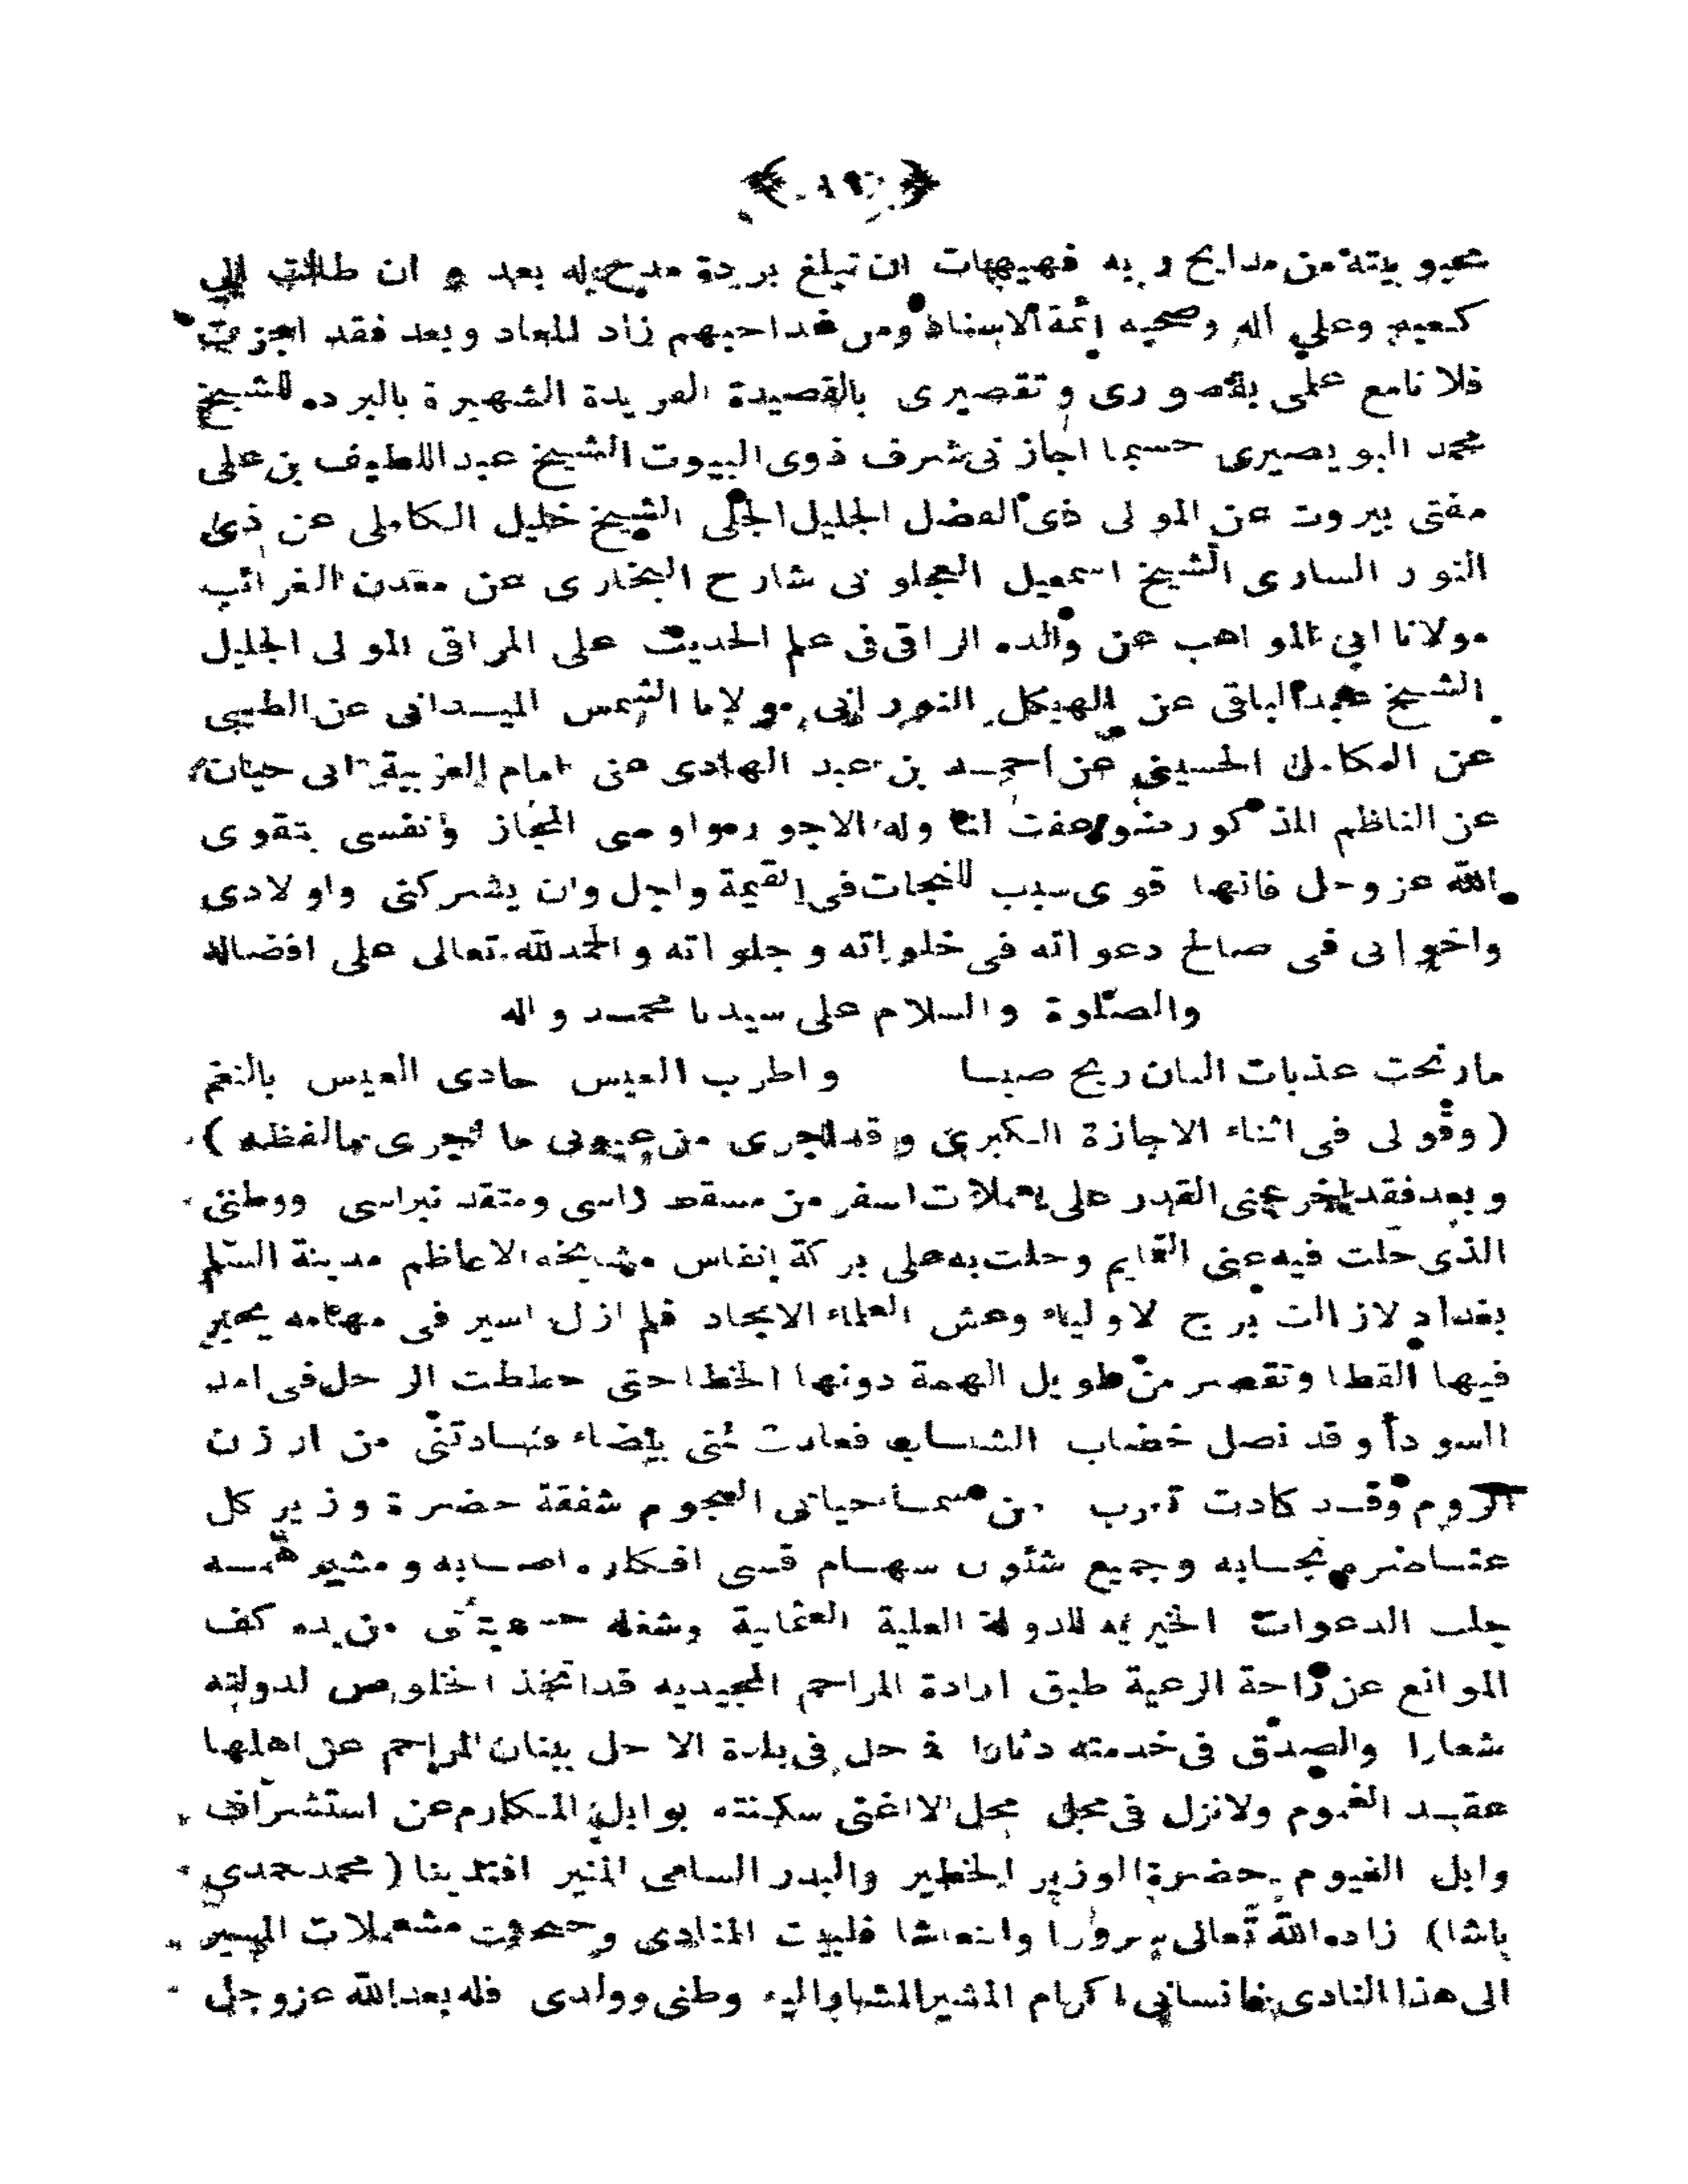 من مدايح ربه فهيهات ان تبلغ بردة مديح له بعد و ان طالت الى
كعبيه وعلى آله وصحبه أئمة الاسناد ومن غدا حبهم زاد للمعاد وبعد فقد اجزت
فلانا مع علمى بقصورى وتقصيرى بالقصيدة الفريدة الشهيرة بالبرده للشيخ
محمد البويصيرى حسبما اجازنى شرف ذوى البيوت الشيخ عبد اللطيف بن على
مفتى بيروت عن المولى ذى الفضل الجليل الجلى الشيخ خليل الكاملى عن ذى
النور السارى الشيخ اسمعيل العجلونى شارح البخارى عن معدن الغرائب
مولانا ابى المواهب عن والده الراقى فى علم الحديث على المراقى المولى الجليل
الشيخ عبد الباقى عن الهيكل النورانى مولانا الشمس الميدانى عن الطيبى
عن الكامل الحسينى عن احمد بن عبد الهادى عن امام العربية ابى حيان
عن الناظم المذكور ضوعفت لنا وله الاجور واوصى المجاز ونفسى بتقوى
الله عز وجل فانها قوى سبب للنجات فى القيمة واجل وان يشركنى واولادى
واخوانى فى صالح دعواته فى خلواته وجلواته والحمد لله تعالى على افضاله
والصلوة والسلام على سيدنا محمد واله
مارنحت عذبات البان ريح صبا واطرب العيس حادى العيس بالنغم
( وقولى فى اثناء الاجازة الكبرى وقد اجرى من عيونى ما يجرى مالفظه )
وبعد فقد اخرجنى القدر على يعملات اسفر من مسقط راسى ومتقد نبراسى ووطنى
الذى حلت فيه عنى التمايم وحلت به على بركة انفاس مشايخه الاعاظم مدينة السلم
بغداد لازالت برج لاولياء وعش العلماء الامجاد فلم ازل اسير فى مهامه يحير
فيها القطا وتقصر من طويل الهمة دونها الخطا حتى حططت الرحل فى امد
السودا وقد نصل خضاب الشباب فعادت بيضاء من ارزن
الروم وقد كادت تغرب من سما حياتى النجوم شفقة حضرة وزير كل
عناصره نجابه وجميع شئون سهام قسى افكاره اصابه ومشير همه
جلب الدعوات الخيريه للدولة العلية العثمانية وشغله من يده كف
الموانع عن راحة الرعية طبق ارادة المراحم المجيديه قد اتخذ الخلوص لدولته
شعارا والصدق فى خدمته دثارا فما حل فى بلدة الا حل ببنان المراحم عن اهلها
عقد الغموم ولا نزل فى محل محل الا اغنى سكنته بوابل المكارم عن استشراف
وابل الغيوم حضرة الوزير الخطير والبدر السامى المنير افندينا ( محمد حمدى
باشا) زاده الله تعالى سرورا وانتعاشا فلبيت المنادى وحدوت مشمعلات المسير
الى هذا النادى فانسانى اكرام المشير المشار اليه وطنى وولدى فله بعد الله عز وجل